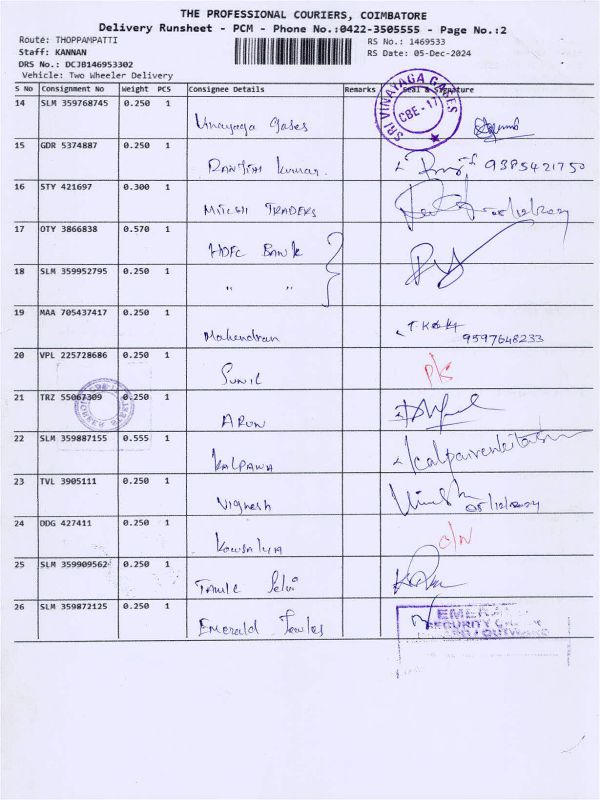 THE PROFESSIONAL COURIERS, COIMBATORE
Delivery Runsheet - PCM - Phone No.:0422-3505555 - Page No.:2
Route: THOPPAMPATTI
RS No.: 1469533
Staff: KANNAN
RS Date: 05-Dec-2024
DRS No.: DCJB146953302
Vehicle: Two Wheeler Delivery
S No Consignment No Weight PCS Consignee Details Remarks Seal & Signature
14 SLM 359768745 0.250 1 Vinayaga Gases
SRI VINAYAGA GASES
CBE-17
15 GDR 5374887 0.250 1 RANJITH Kumar. 9385421750
16 STY 421697 0.300 1 MITESH TRADERS 05/12/2024
17 OTY 3866838 0.570 1 HDFC Bank
18 SLM 359952795 0.250 1 " "
19 MAA 705437417 0.250 1 Mahendran
9597648233
20 VPL 225728686 0.250 1 SUNIL
21 TRZ 55067309 0.250 1 ARUN
22 SLM 359887155 0.555 1 KALPANA
23 TVL 3905111 0.250 1 Vignesh 05/12/2024
24 DDG 427411 0.250 1 Kowsalya O/N
25 SLM 359909562 0.250 1 Tamil Selvi
26 SLM 359872125 0.250 1 Emerald Jewles
EMERALD
SECURITY